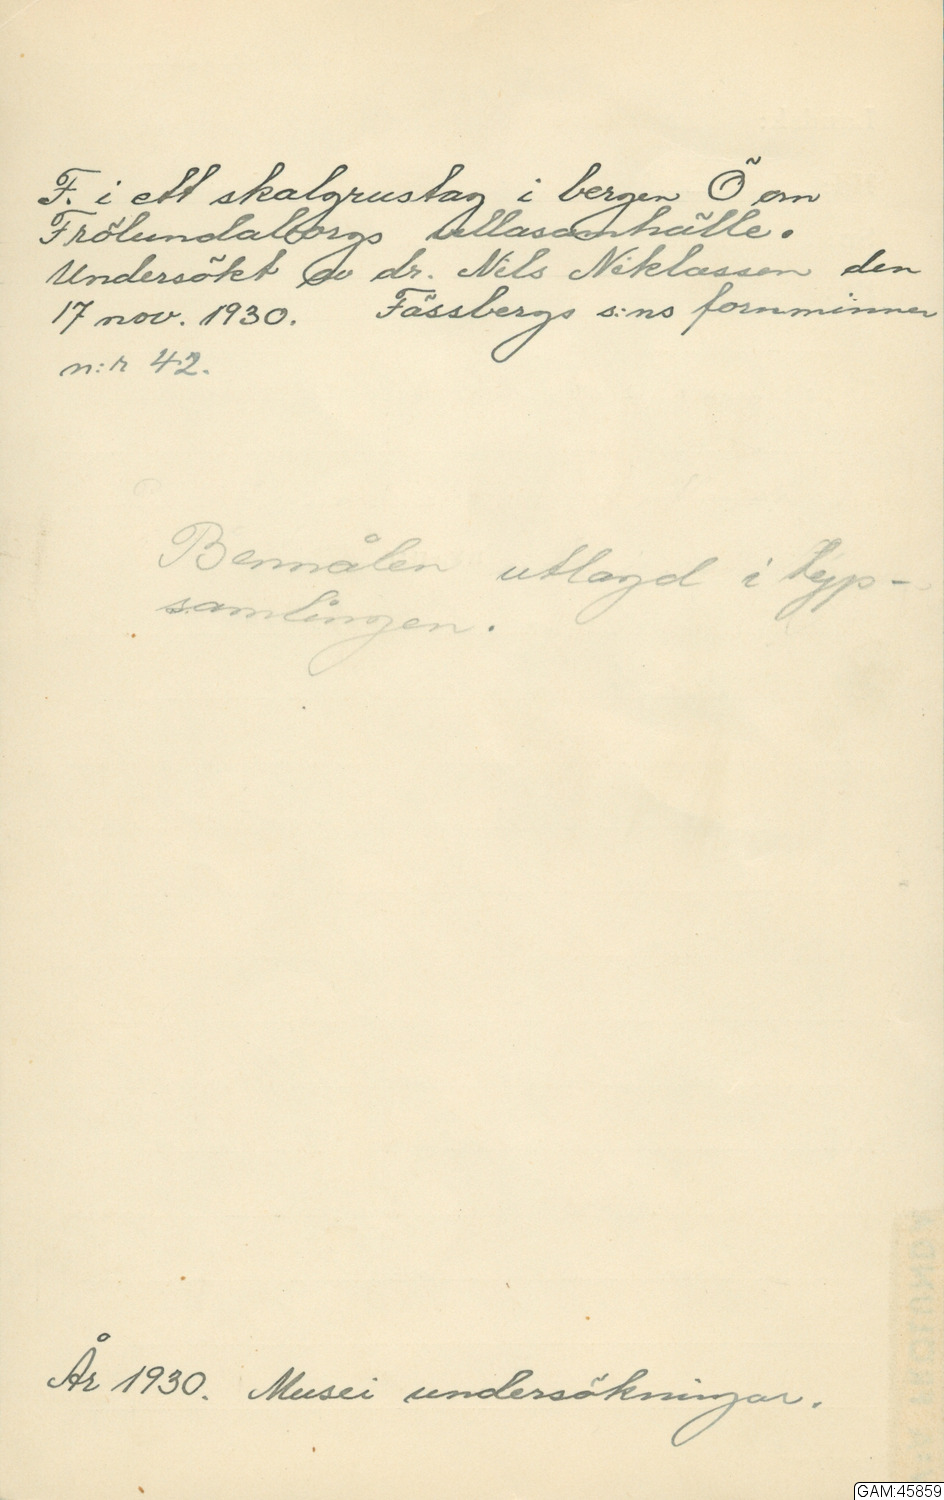 F. i ett skalgrustag i bergen Ö om
Frölundaborgs villasamhälle.
Undersökt av dr. Nils Niklasson den
17 nov. 1930. Fässbergs s:ns fornminnen
n:r 42.
Bennålen utlagd i typ-
samlingen.
År 1930. Musei undersökningar.
GAM:45859